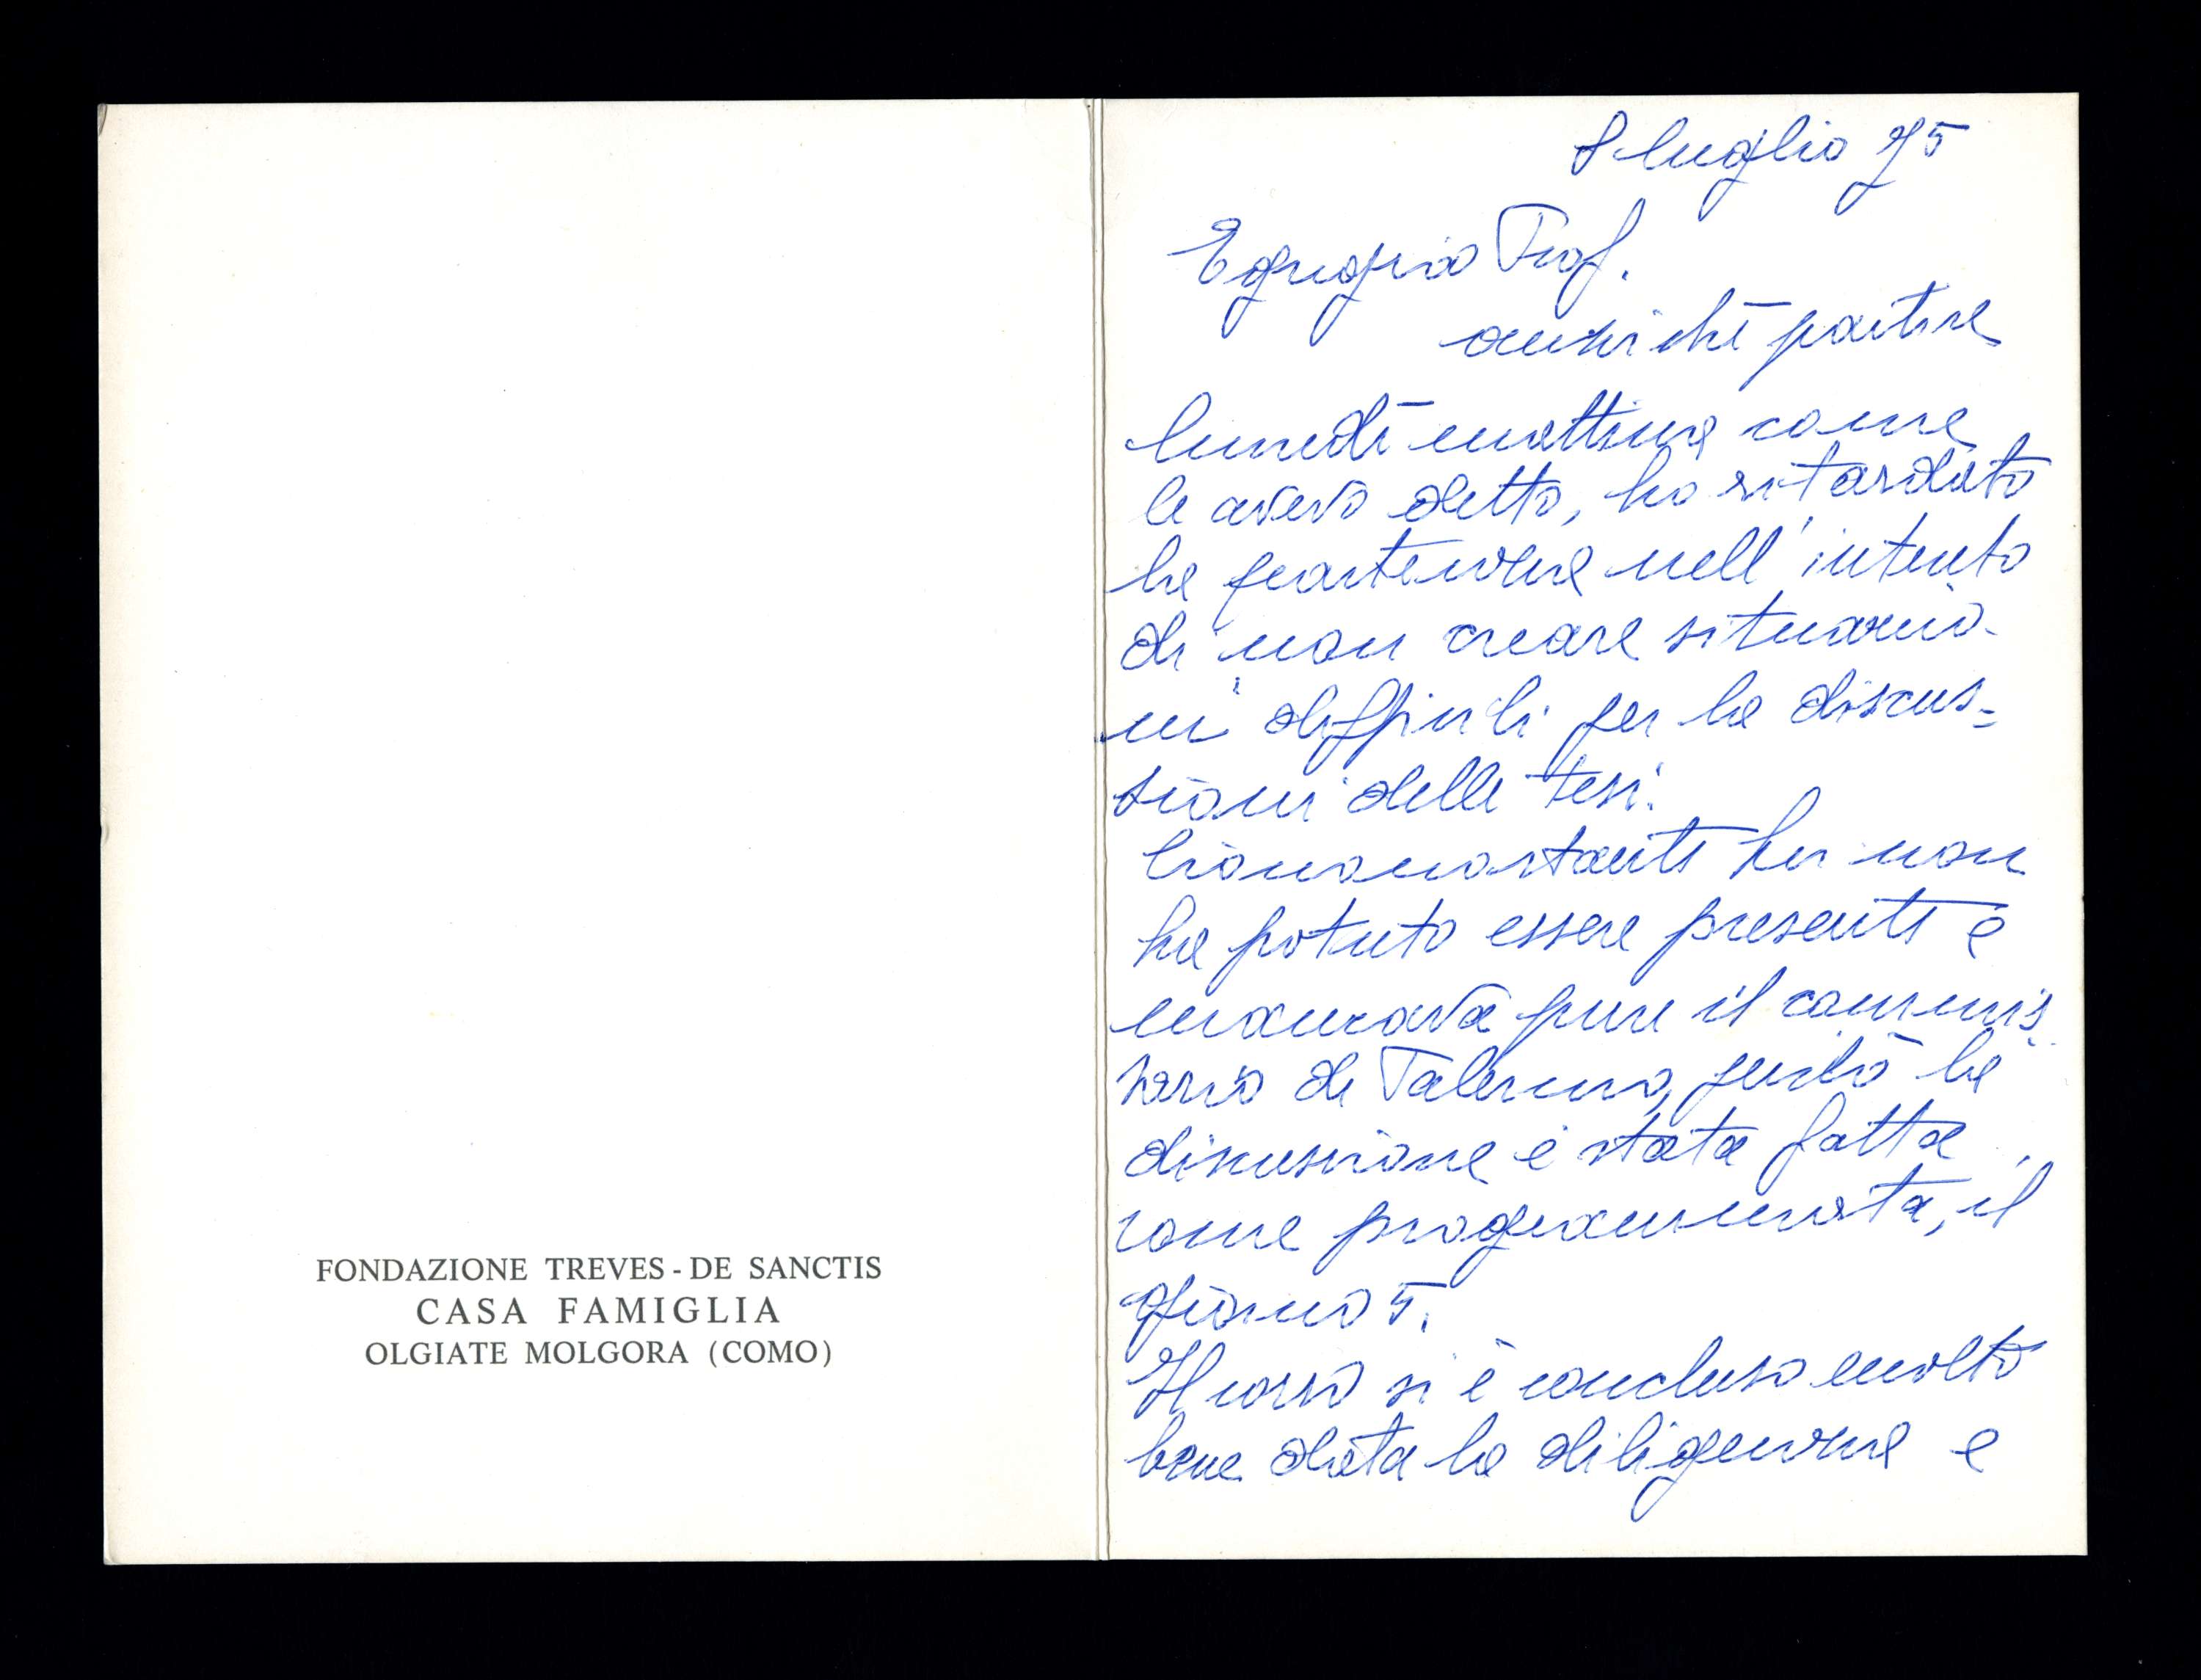 FONDAZIONE TREVES - DE SANCTIS
CASA FAMIGLIA
OLGIATE MOLGORA (COMO)
8 luglio 75
Egregio Prof.
anziché partire
lunedì mattina come
le avevo detto, ho ritardato
la partenza nell'intento
di non creare situazio-
ni difficili per la discus-
sioni delle tesi.
Ciononostante Lei non
ha potuto essere presente e
mancava pure il commis
sario di Palermo, perciò la
discussione è stata fatta
come programmata, il
giorno 5.
Il corso si è concluso molto
bene data la diligenza e